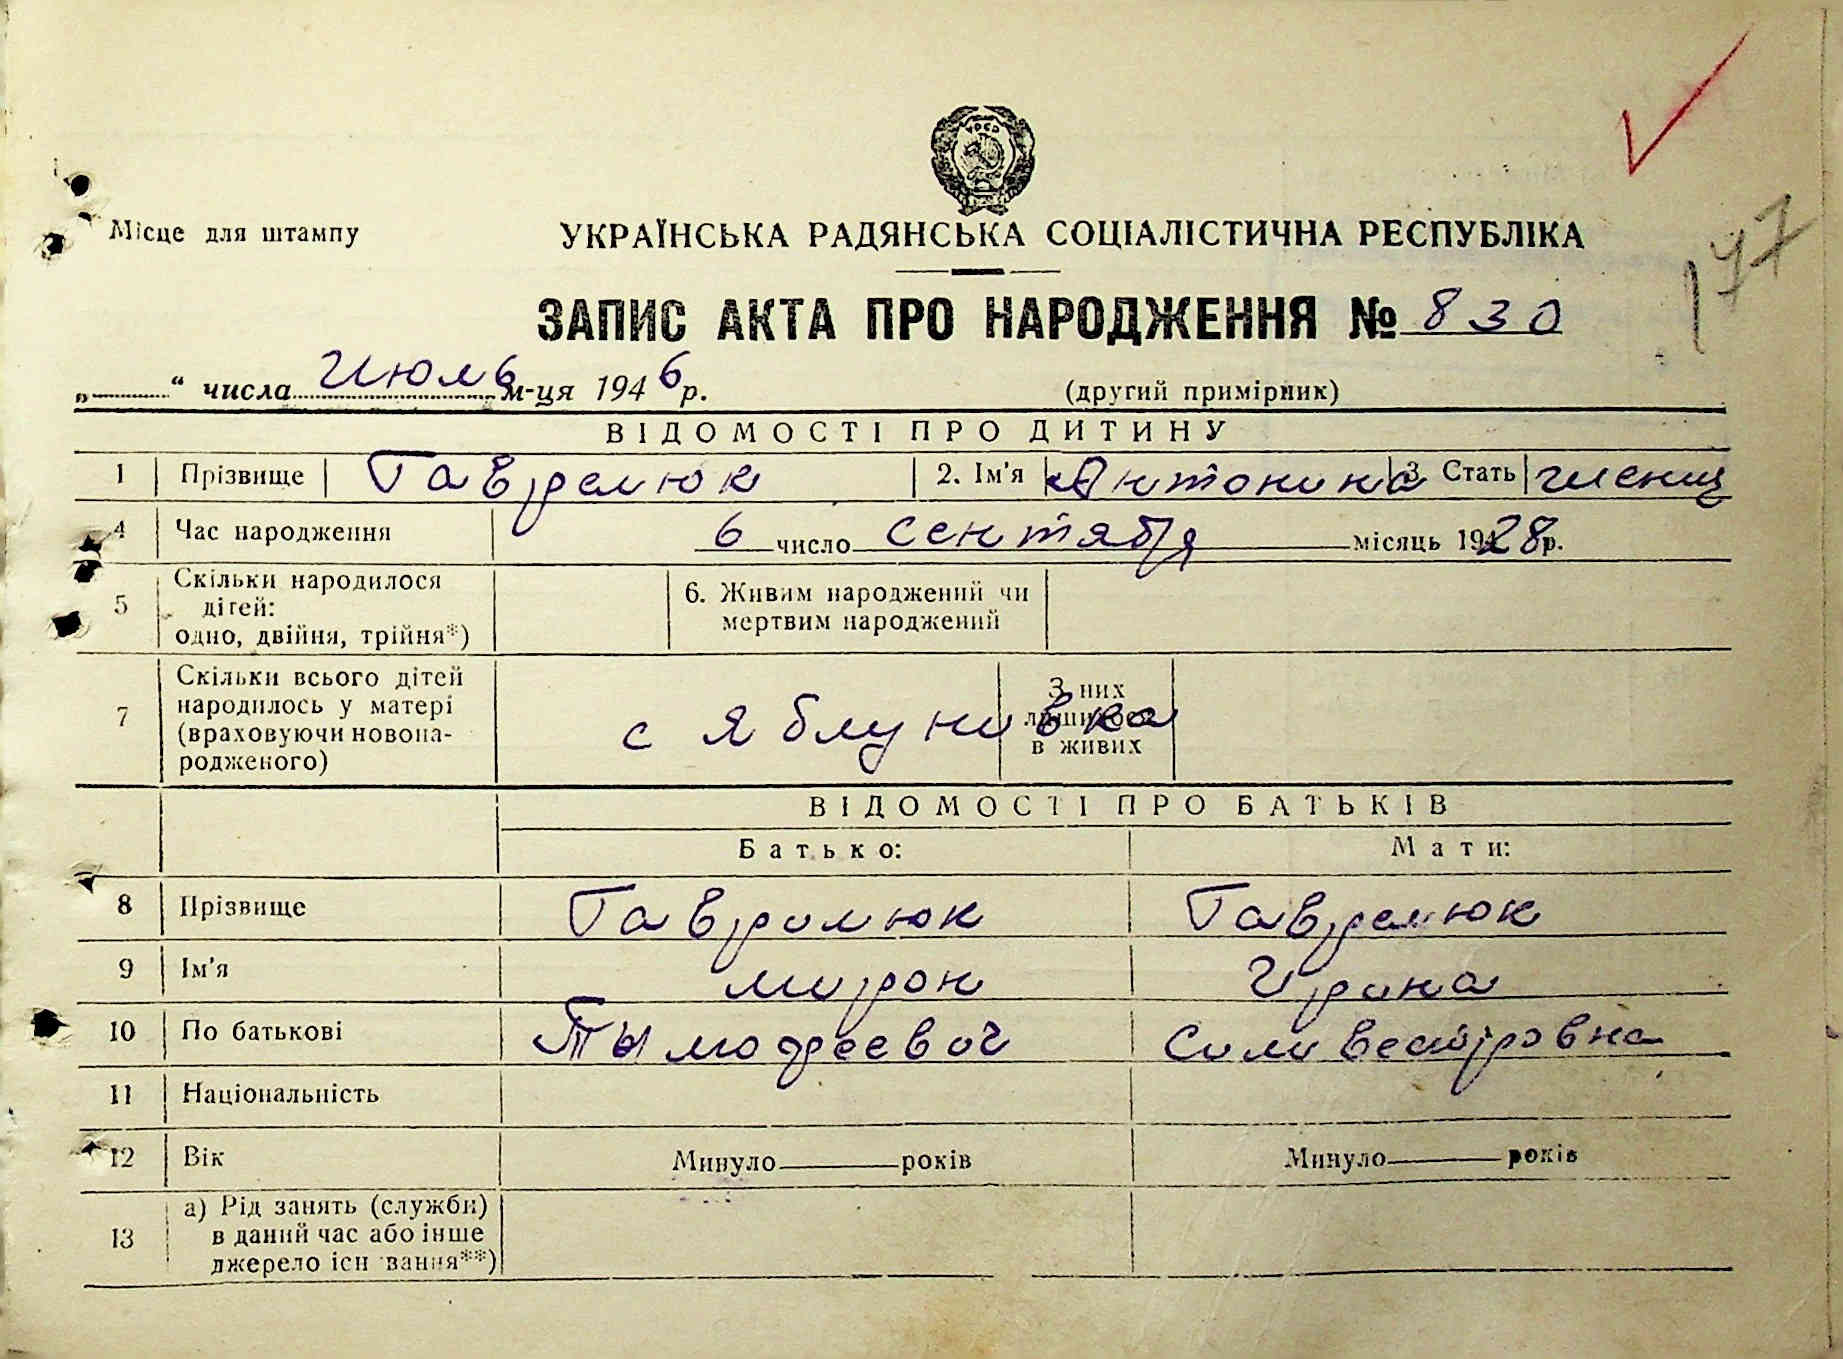 Місце для штампу
УКРАЇНСЬКА РАДЯНСЬКА СОЦІАЛІСТИЧНА РЕСПУБЛІКА
147
ЗАПИС АКТА ПРО НАРОДЖЕННЯ № 830
„ “ числа Июль м-ця 1946 р. (другий примірник)
ВІДОМОСТІ ПРО ДИТИНУ
1 Прізвище Гаврелюк 2. Ім'я Антонина 3. Стать женщ
4 Час народження 6 число сентября місяць 1928 р.
5 Скільки народилося дітей: одно, двійня, трійня*) 6. Живим народжений чи мертвим народжений
7 Скільки всього дітей народилось у матері (враховуючи новонародженого) с Яблунивка З них лишилося в живих
ВІДОМОСТІ ПРО БАТЬКІВ
Батько: Мати:
8 Прізвище Гаврилюк Гаврелюк
9 Ім'я Мирон Ирина
10 По батькові Тымофеевич Силивестровна
11 Національність
12 Вік Минуло років Минуло років
13 а) Рід занять (служби) в даний час або інше джерело існування**)